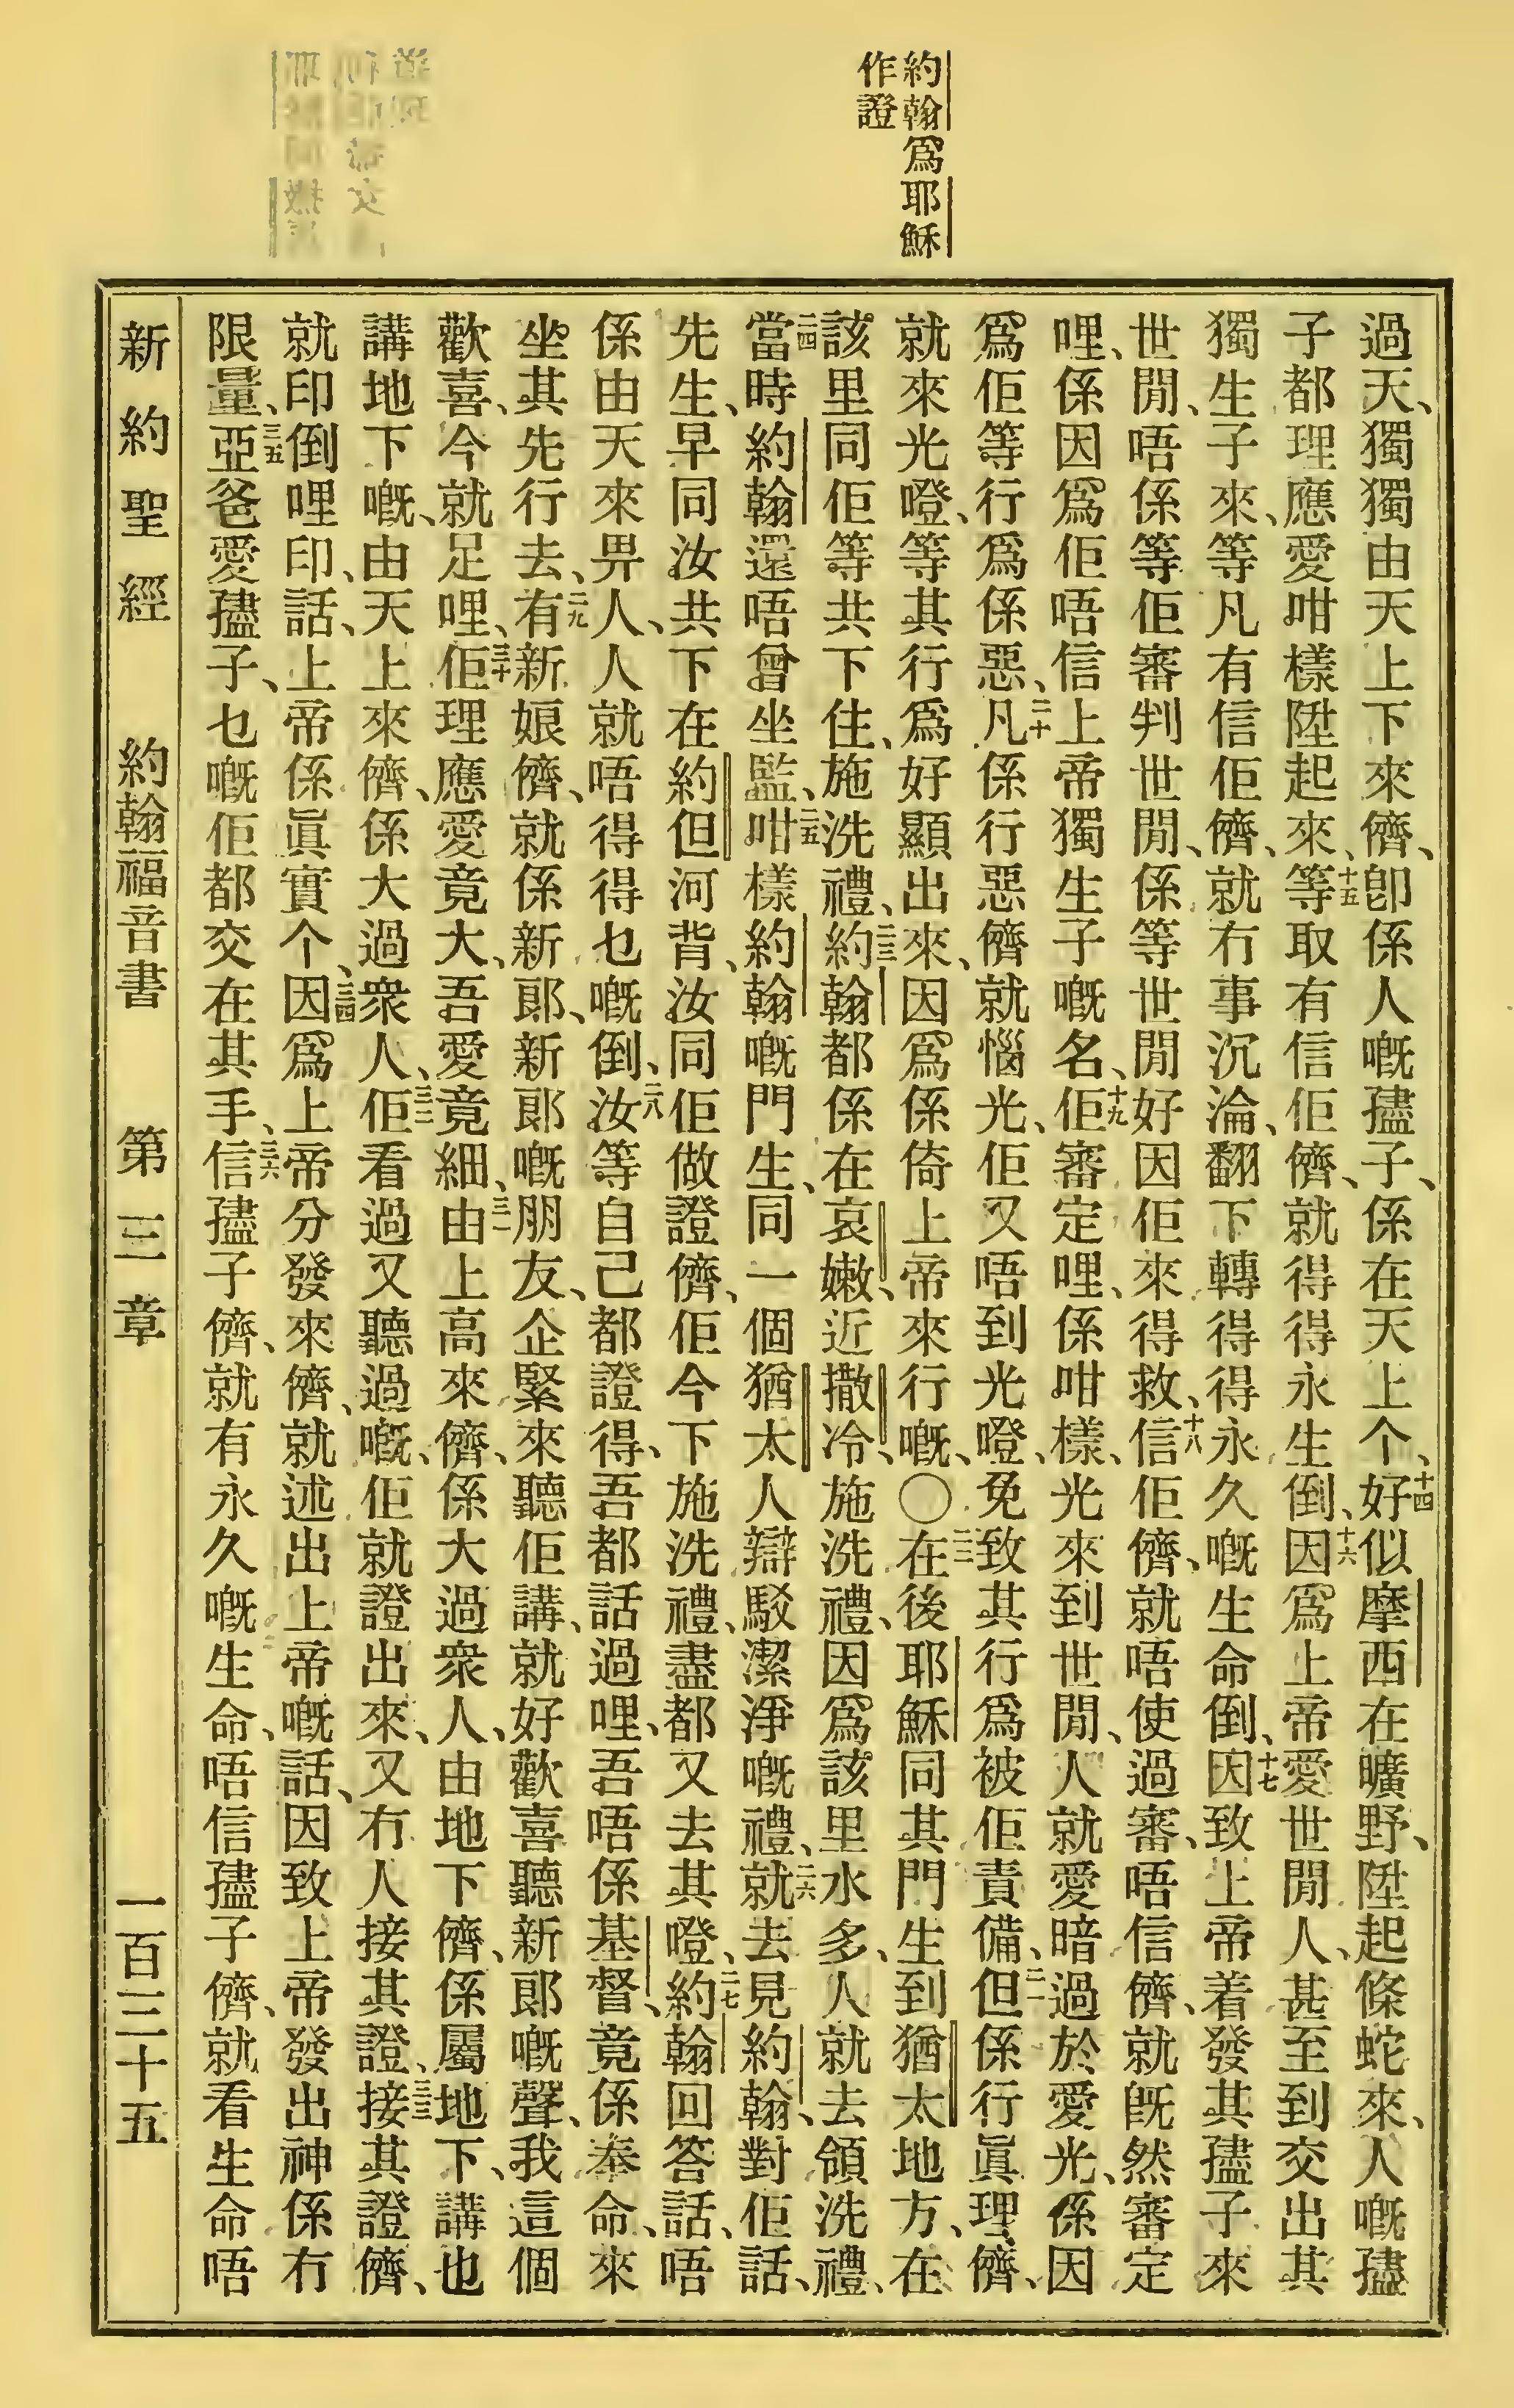 約翰爲耶穌
作證
過天、獨獨由天上下來儕、卽係人嘅孻子、係在天上个、十四好似摩西在曠野、陞起條蛇來、人嘅孻
子都理應愛咁樣陞起來、十五等取有信佢儕、就得得永生倒、十六因爲上帝愛世閒人、甚至到交出其
獨生子來、等凡有信佢儕、就冇事沉淪、翻下轉得得永久嘅生命倒、十七因致上帝着發其孻子來
世閒、唔係等佢審判世閒、係等世閒好因佢來得救、十八信佢儕、就唔使過審、唔信儕、就旣然審定
哩、係因爲佢唔信上帝獨生子嘅名、十九佢審定哩、係咁樣、光來到世閒、人就愛暗過於愛光、係因
爲佢等行爲係惡、二十凡係行惡儕就惱光、佢又唔到光噔、免致其行爲被佢責備、二一但係行眞理儕、
就來光噔、等其行爲好顯出來、因爲係倚上帝來行嘅、〇二二在後耶穌同其門生到猶太地方、在
該里同佢等共下住、施洗禮、二三約翰都係在哀嫩、近撒冷、施洗禮、因爲該里水多、人就去領洗禮、
二四當時約翰還唔曾坐監、二五咁樣約翰嘅門生、同一個猶太人辯駁潔淨嘅禮、二六就去見約翰、對佢話、
先生、早同汝共下在約但河背、汝同佢做證儕、佢今下施洗禮、盡都又去其噔、二七約翰回答話、唔
係由天來畀人、人就唔得得乜嘅倒、二八汝等自己都證得、吾都話過哩、吾唔係基督、竟係奉命、來
坐其先行去、二九有新娘儕、就係新郞、新郞嘅朋友、企緊來聽佢講、就好歡喜聽新郞嘅聲、我這個
歡喜、今就足哩、三十佢理應愛竟大、吾愛竟細、三一由上高來儕、係大過衆人、由地下儕、係屬地下、講也
講地下嘅、由天上來儕、係大過衆人、三二佢看過又聽過嘅、佢就證出來、又冇人接其證、三三接其證儕、
就印倒哩印、話、上帝係眞實个、三四因爲上帝分發來儕、就述出上帝嘅話、因致上帝發出神係冇
限量、三五亞爸愛孻子、乜嘅佢都交在其手、三六信孻子儕、就有永久嘅生命、唔信孻子儕、就看生命唔
新約聖經 約翰福音書 第三章 一百三十五